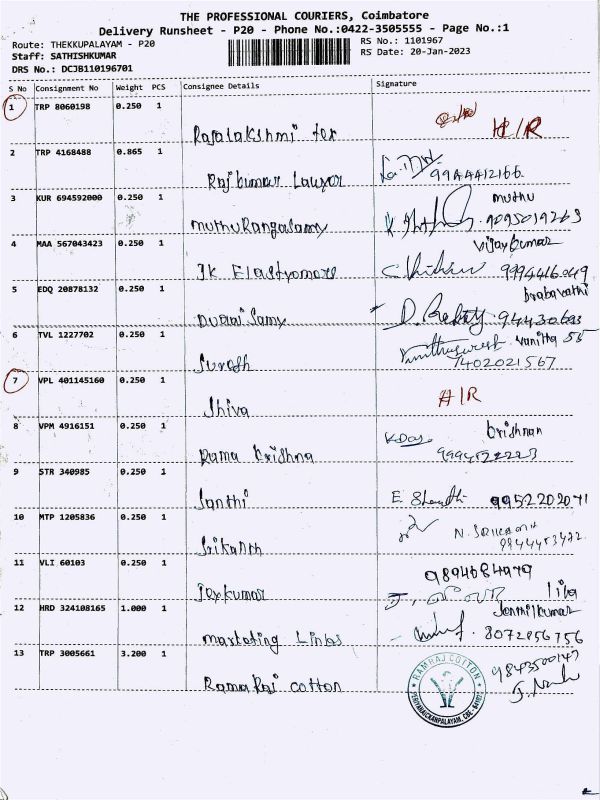 THE PROFESSIONAL COURIERS, Coimbatore
Delivery Runsheet - P20 - Phone No.:0422-3505555 - Page No.:1
Route: THEKKUPALAYAM - P20
RS No.: 1101967
Staff: SATHISHKUMAR
RS Date: 20-Jan-2023
DRS No.: DCJB110196701
S No Consignment No Weight PCS Consignee Details Signature
1 TRP 8060198 0.250 1
Rajalakshmi tex H/R
2 TRP 4168488 0.865 1
Rajkumar Lawyer 9944412166
3 KUR 694592000 0.250 1 muthu
muthuRangasamy
4 MAA 567043423 0.250 1 Vijaykumar
JK Elastyomore 9994416049
5 EDQ 20878132 0.250 1
Duraisamy
6 TVL 1227702 0.250 1 vanitha
Suresh 7402021567
7 VPL 401145160 0.250 1 H/R
Shiva
8 VPM 4916151 0.250 1 krishnan
Rama Krishna
9 STR 340985 0.250 1
Santhi 9952202071
10 MTP 1205836 0.250 1
Srikanth
11 VLI 60103 0.250 1 9894684979
Jeykumar
12 HRD 324108165 1.000 1
marketing Links 8072056756
13 TRP 3005661 3.200 1
RamaRaj cotton
RAMRAJ COTTON